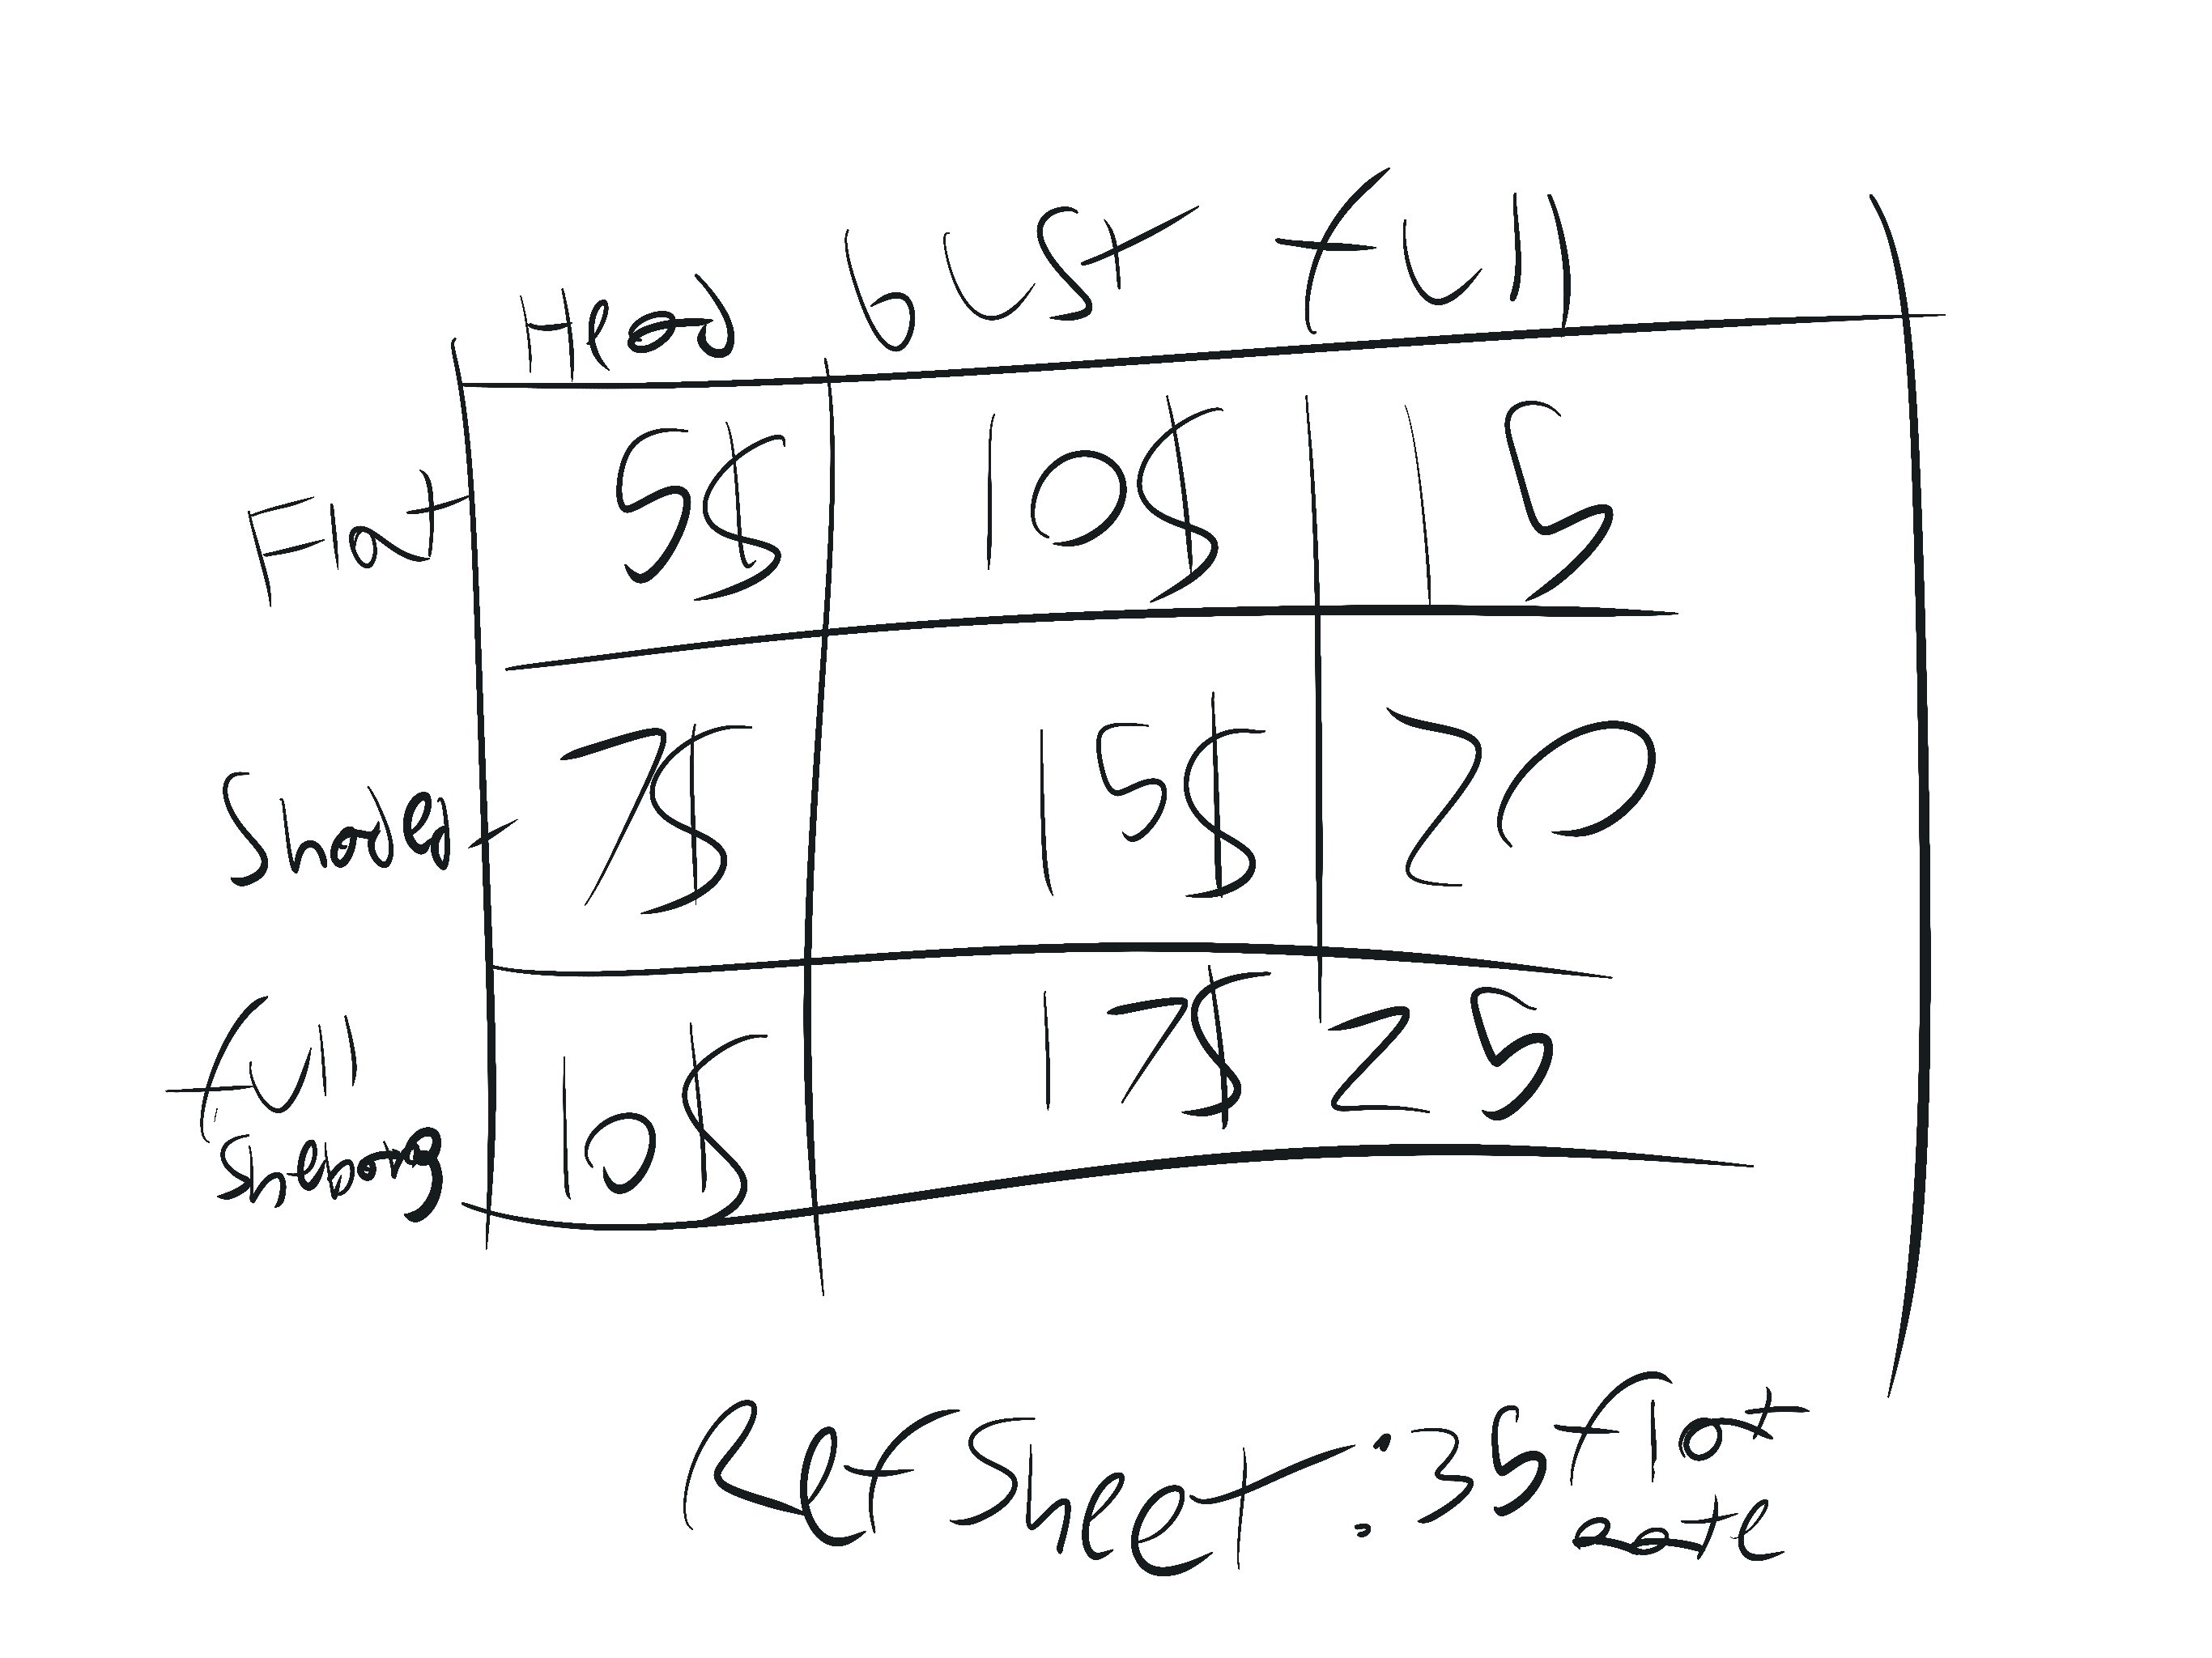 Head bust full
Flat 5$ 10$ 15
Shaded 7$ 15$ 20
full
Shebang 10$ 17$ 25
Ref Sheet: 35 flat
rate